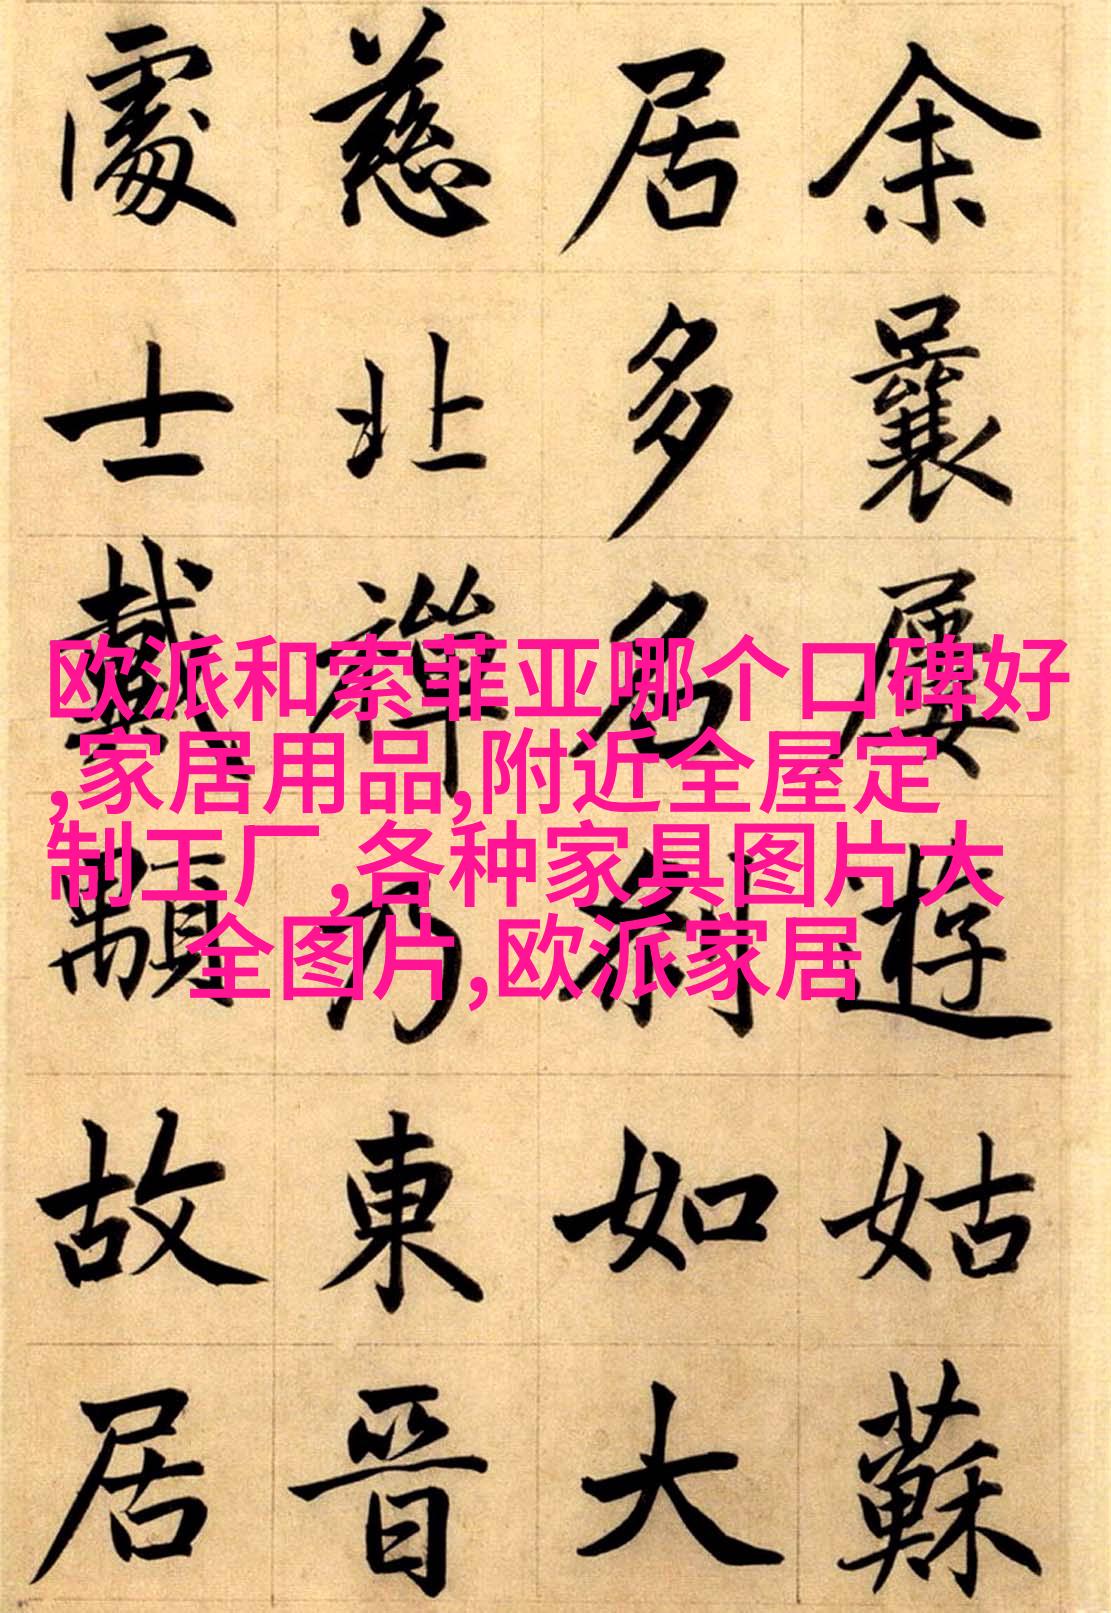 余曩屢遊姑蘇
居多名刹如大
慈北禪乃東晋
處士戴顒故居
欧派和索菲亚哪个口碑好
,家居用品,附近全屋定
制工厂,各种家具图片大
全图片,欧派家居